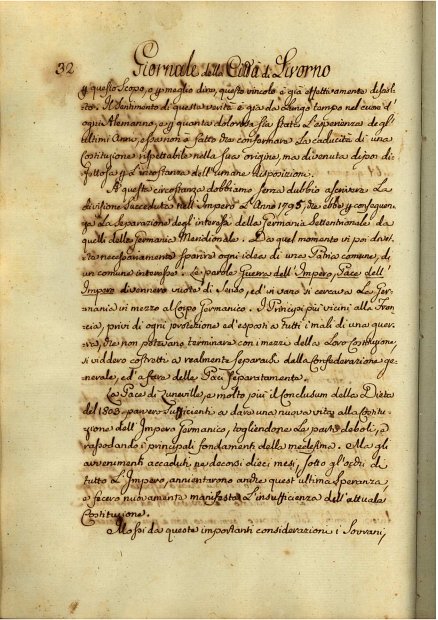 32 Giornale della Città di Livorno
questo Scopo, o meglio dire, questo vincolo è già effettivamente disciol-
to. Il Sentimento di questa verità è già da Lungo tempo nel cuore d'
ogni Alemanno, e quanto dolorosa sia stata L'esperienza degl'
ultimi Anni, essa non à fatto che confermare La caducità di una
Costituzione rispettabile nella sua origine, ma divenuta dipoi di-
fettosa L'incostanza dell'umane disposizioni.
A questa circostanza dobbiamo senza dubbio ascrivere La
divisione Succeduta nell'Impero L'Anno 1795, che ebbe conseguen-
za La Separazione degl'interessi della Germania Settentrionale da
quelli della Germania Meridionale. Da quel momento vi poi dové
necessariamente sparire ogni idea di una Patria comune, di
un comune interesse. Le parole Guerra dell'Impero, Pace dell'
Impero divennero vuote di Senso, ed in vano si cercava La Ger-
mania in mezzo al Corpo Germanico. I Principi più vicini alla Fran-
cia, privi di ogni protezione ed esposti a tutti i mali di una guer-
ra, che non potevano terminare con i mezzi della Loro Costituzione,
si viddero costretti a realmente separarsi della Confederazione ge-
nerale, ed a fare delle Paci Separatamente.
La Pace di Luneville, e molto più il Conclusum della Dieta
del 1803. parvero Sufficienti a dare una nuova vita alla Costitu-
zione dell'Impero Germanico, togliendone Le parti deboli, e
rassodando i principali fondamenti della medesima. Ma gli
avvenimenti accaduti ne decorsi dieci mesi, sotto gl'occhi di
tutto L'Impero, annientarono anche quest'ultima Speranza,
e fecero nuovamente manifesta L'insufficienza dell'attuale
Costituzione.
Mossi da queste importanti considerazioni i Sovrani,